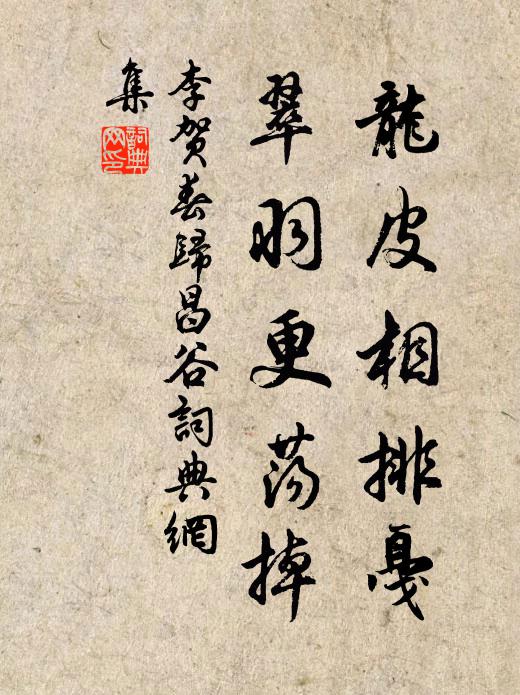 龍皮相排戛
翠羽更蕩掉
李賀春歸昌谷詞典網
集
詞典網印